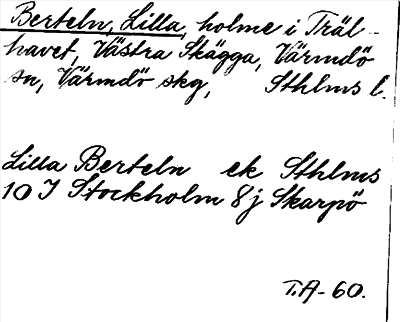 Berteln, Lilla, holme i Träl-
havet, Västra Skägga, Värmdö
sn, Värmdö skg, Sthlms l.
Lilla Berteln ek Sthlms
10 I Stockholm 8 j Skarpö
T.A-60.